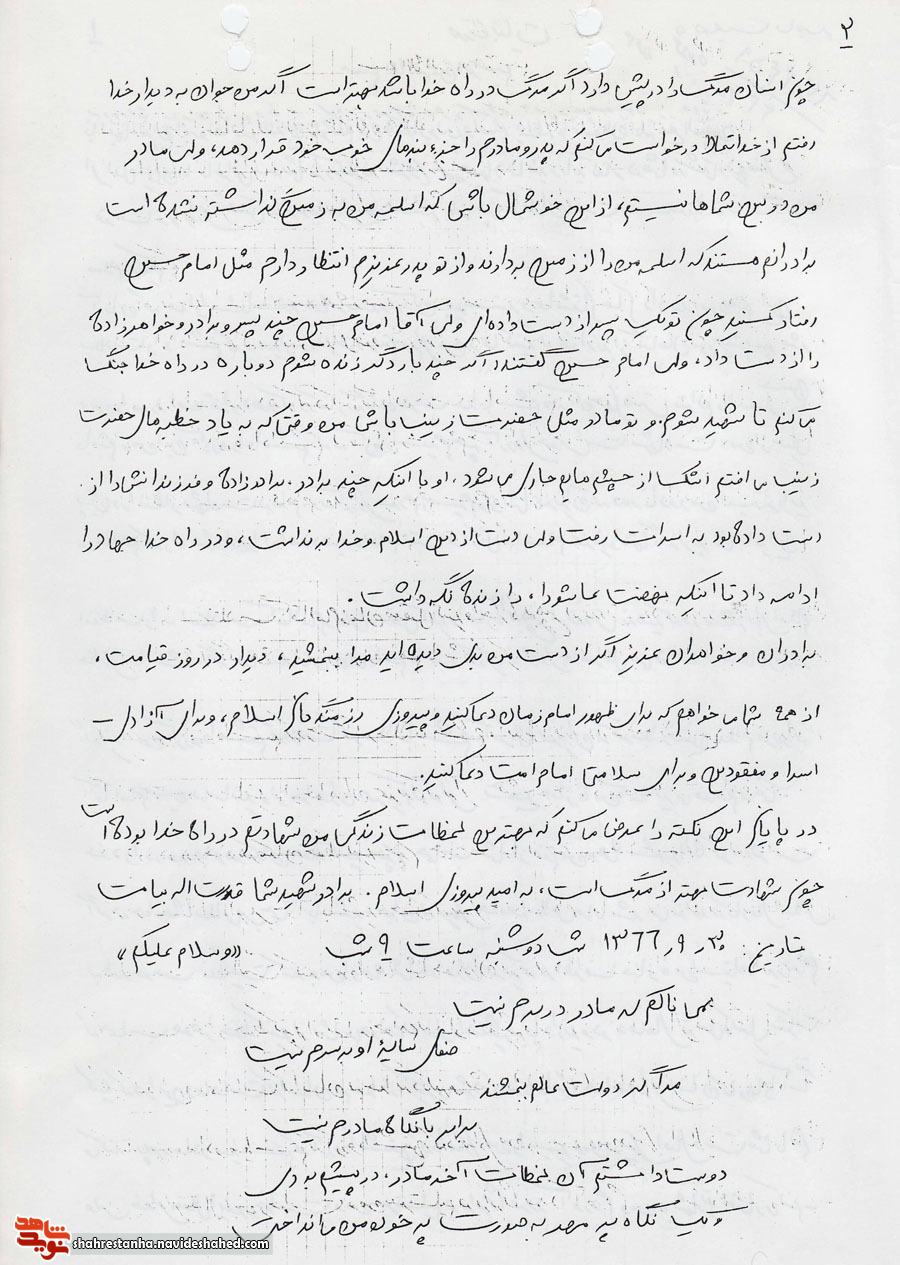 ۲
چون انسان مرگ را در پیش دارد اگر مرگ در راه خدا باشد بهتر است اگر من جوان به دیدار خدا
رفتم از خدا تعالا درخواست می‌کنم که پدر و مادرم را جزء بنده‌های خوب خود قرار دهد، ولی مادر
من در بین شماها نیستم، از این خوشحال باشی که اسلحه من به زمین گذاشته نشده است
برادرانم هستند که اسلحه من را از زمین بردارند و از تو پدر عزیزم انتظار دارم مثل امام حسین
رفتار کنید چون تو یک پسر از دست داده‌ای ولی آقا امام حسین چند پسر و برادر و خواهرزاده
را از دست داد، ولی امام حسین گفتند اگر چند بار دگر زنده شوم دوباره در راه خدا جنگ
می‌کنم تا شهید شوم. و تو مادر مثل حضرت زینب باشی من وقتی که به یاد خطبه‌های حضرت
زینب می‌افتم اشک از چشم‌هایم جاری می‌شود، او با اینکه چند برادر. برادرزاده و فرزندانش را از
دست داده بود به اسارت رفت ولی دست از دین اسلام و خدا برنداشت، و در راه خدا جهاد را
ادامه داد تا اینکه نهضت عاشورا، را زنده نگه داشت.
برادران و خواهران عزیز اگر از دست من بدی دیده‌اید مرا ببخشید، دیدار در روز قیامت،
از همه شما می‌خواهم که برای ظهور امام زمان دعا کنید و پیروزی رزمندگان اسلام، و برای آزادی
اسرا و مفقودین و برای سلامتی امام امت دعا کنید.
در پایان این نکته را عرض می‌کنم که بهترین لحظات زندگی من شهادتم در راه خدا بوده است
چون شهادت بهتر از مرگ است، به امید پیروزی اسلام. برادر شهید شما قدرت اله بیامت
تاریخ: ۳۰ر۹ر۱۳۶۶ شب دوشنبه ساعت ۹ شب «وسلام علیکم»
بمانالم که مادر در برم نیست
صفای سایهٔ او بر سرم نیست
مرا گر دولت عالم ببخشند
برابر با نگاه مادرم نیست
دوست داشتم آن لحظات آخر مادر، در پیشم بودی
و یک نگاه پر مهر به صورت پر خون من می‌انداختی
نوید شاهد
shahrestanha.navideshahed.com